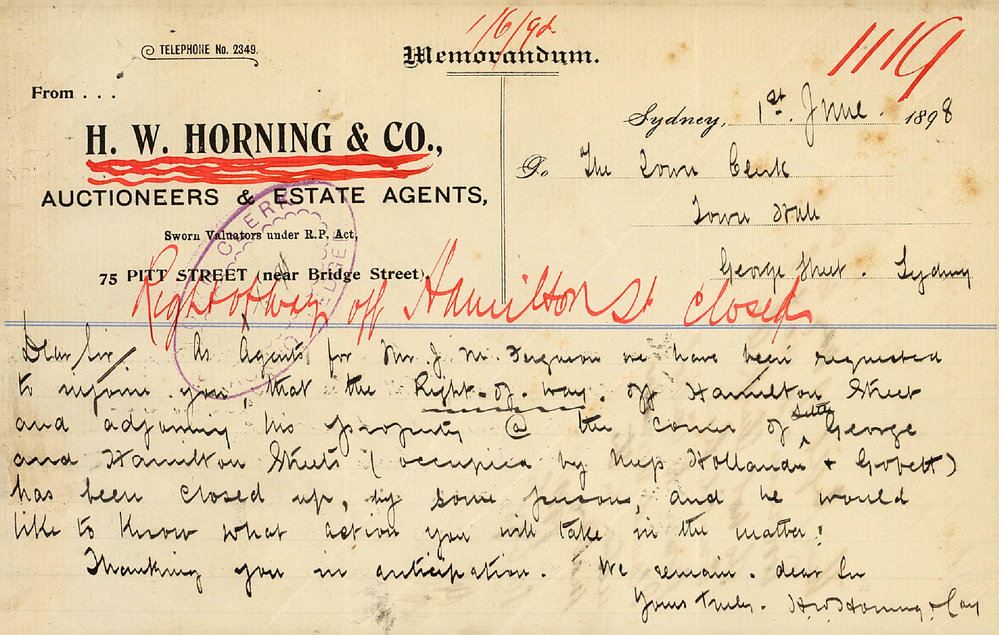 1/6/98
1119
TELEPHONE No. 2349.
Memorandum.
From . . .
H. W. HORNING & CO.,
AUCTIONEERS & ESTATE AGENTS,
Sworn Valuators under R.P. Act,
75 PITT STREET (near Bridge Street).
Sydney, 1st. June. 1898
To The Town Clerk
Town Hall
George Street. Sydney
CLERK
Right of way off Hamilton St closed
Dear Sir/ As Agents for Mr J. M. Ferguson we have been requested
to inform you, that the Right-of-way. off Hamilton Street
and adjoining his property @ the corner of Little George
and Hamilton Streets (occupied by Hollander & Govett)
has been closed up, by some persons, and he would
like to know what action you will take in the matter?
Thanking you in anticipation. We remain. dear Sir
Yours truly. H.W. Horning & Coy